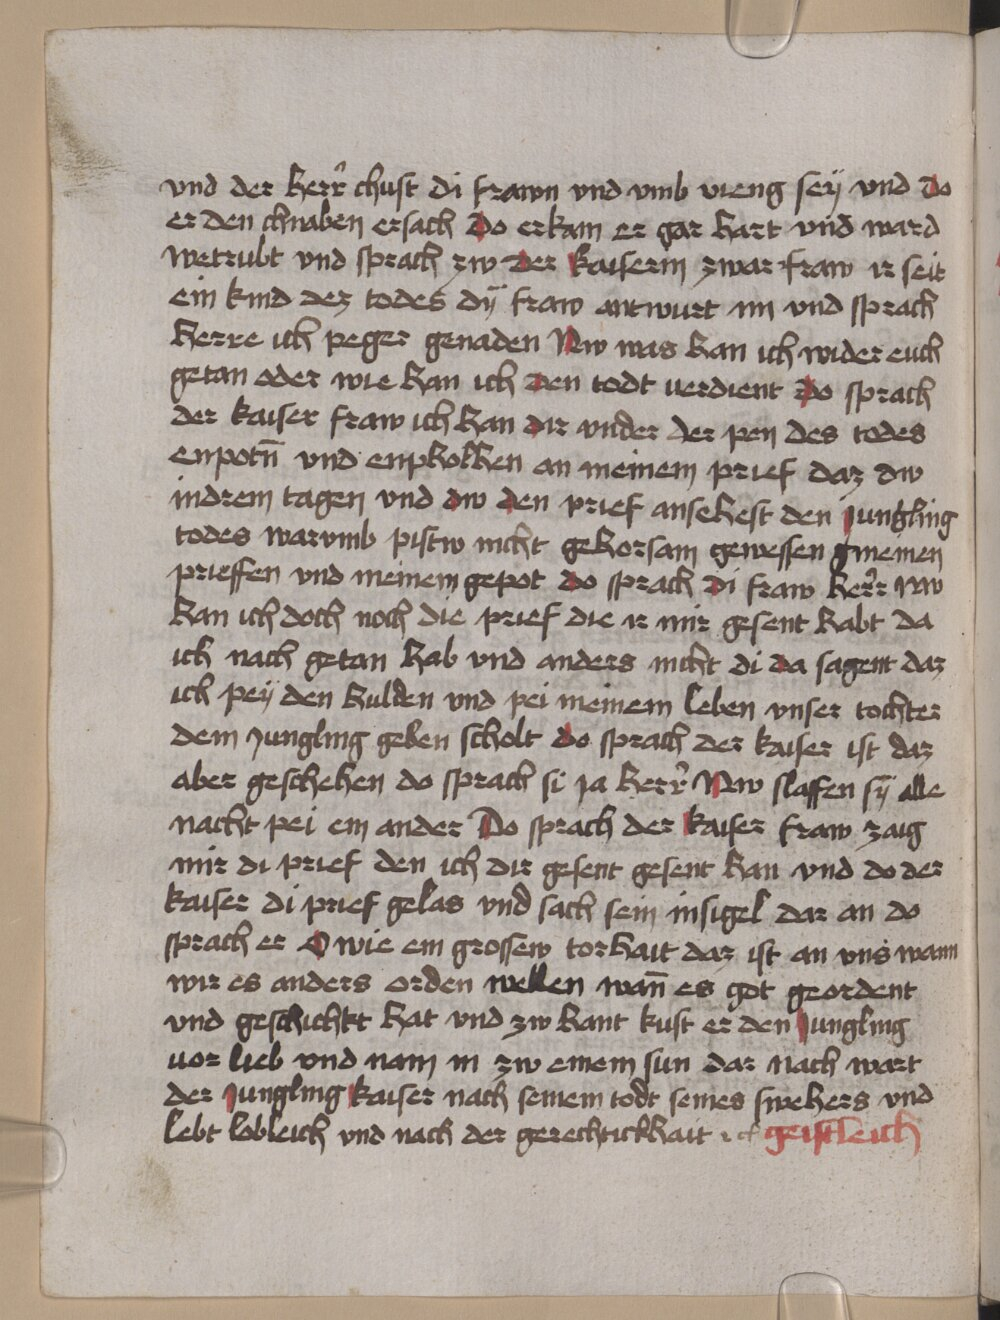 vnd der herr chust di frawn vnd vmb vieng seÿ vnd do
er den chnaben ersach Do erkam er gar hart vnd ward
wetrubt vnd sprach zw der kaiserin zwar fraw ir seit
ein kind dez todes dÿ fraw antwurt im vnd sprach
herre ich peger genaden Nw was han ich wider euch
getan oder wie han ich den todt verdient Do sprach
der kaiser fraw ich han dir vnder der pen des todes
enpotn̄ vnd enpholhen an meinem prief daz dw
indrem tagen vnd dw den prief ansehest den Jungling
todes warvmb pistw nicht gehorsam gewessen meinen
prieffen vnd meinem gepot do sprach di fraw herr Nw
han ich doch noch die prief die ir mir gesent habt da
ich nach getan hab vnd anders nicht di da sagent daz
ich peÿ den hulden vnd pei meinem leben vnser tochter
dem Jungling geben scholt do sprach der kaiser ist daz
aber geschehen do sprach si ja herr Nw slaffen sÿ alle
nacht pei ein ander Do sprach der kaiser fraw zaig
mir di prief den ich dir gesent gesent han vnd do der
kaiser di prief gelas vnd sach sein insigel dar an do
sprach er O wie ein grossew torhait daz ist an vns wann
wir es anders orden wellen wan̄ es got geordent
vnd geschichkt hat vnd zw hant kust er den Jungling
vor lieb vnd nam in zw einem sun dar nach wart
der Jungling kaiser nach seinem todt seines swehers vnd
lebt lobleich vnd nach der gerechtickhait geistleich